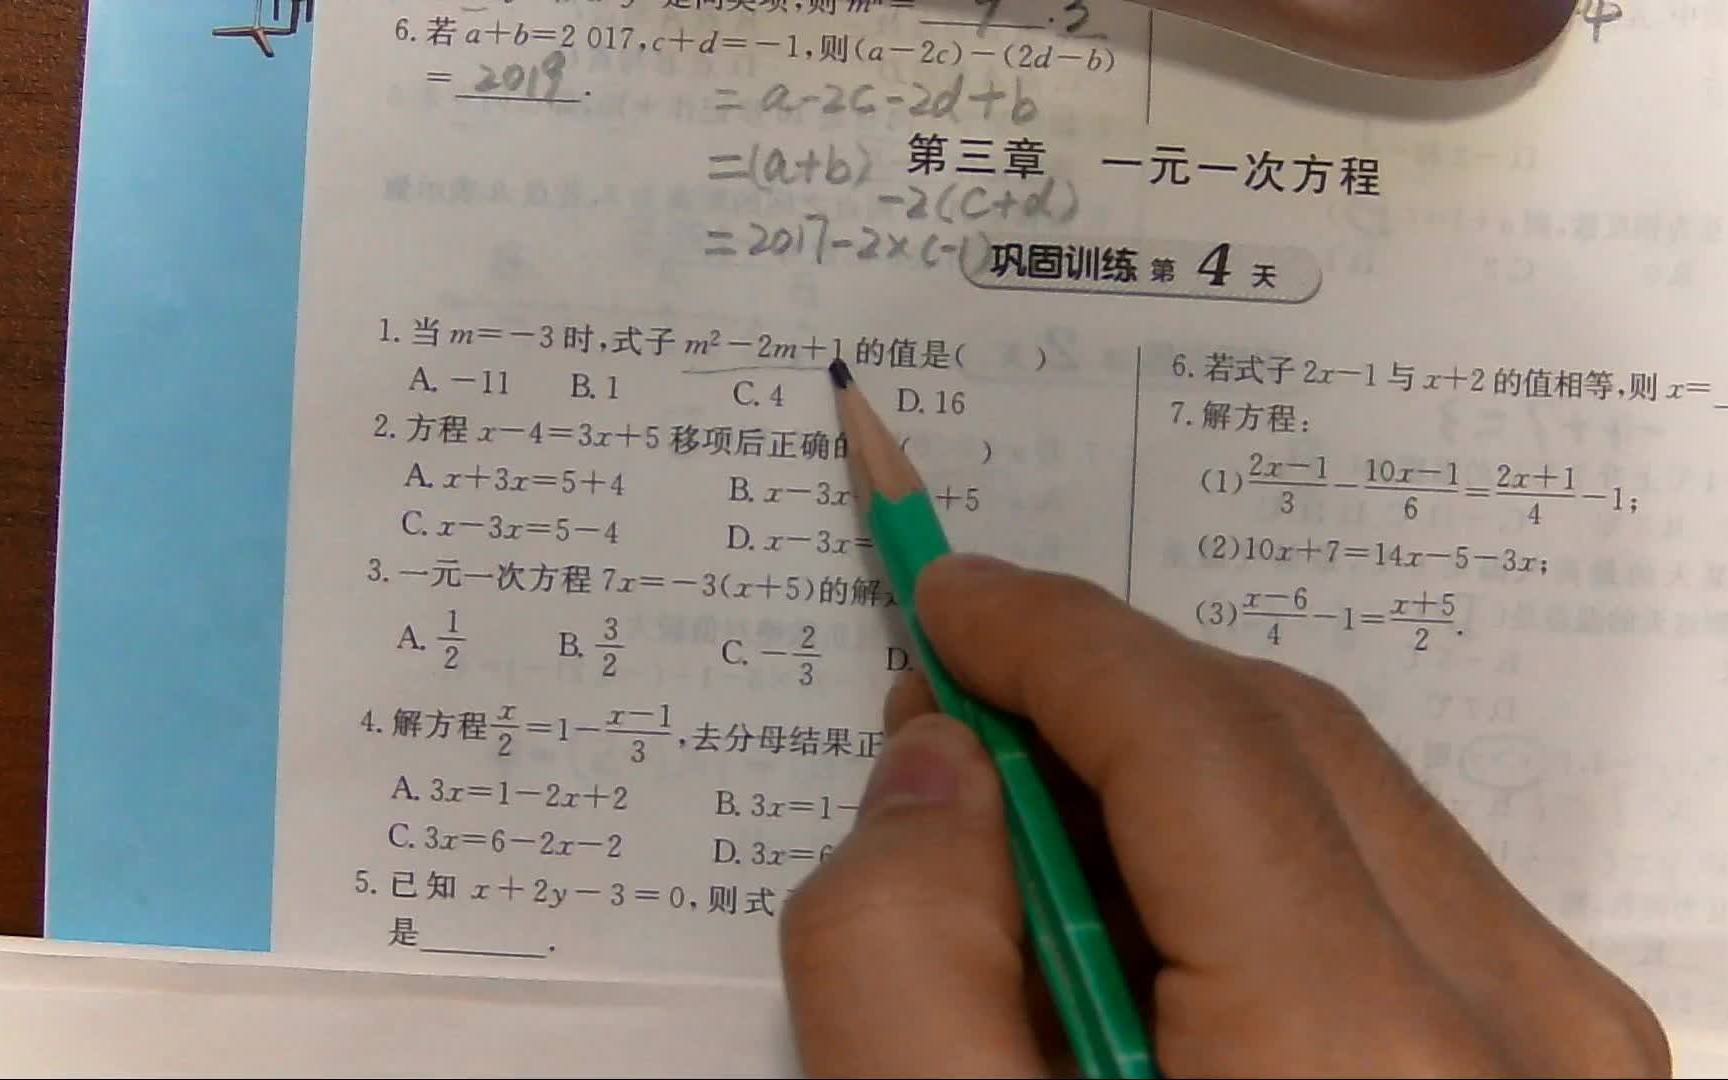 是同类项,则mⁿ=
6.若a+b=2 017,c+d=-1,则(a-2c)-(2d-b)
=2019.
=a-2c-2d+b
=(a+b)
-2(c+d)
=2017-2×(-1)
第三章 一元一次方程
巩固训练 第4天
1.当m=-3时,式子m²-2m+1的值是( )
A.-11 B.1 C.4 D.16
2.方程x-4=3x+5移项后正确的 ( )
A.x+3x=5+4 B.x-3x +5
C.x-3x=5-4 D.x-3x=
3.一元一次方程7x=-3(x+5)的解
A.1/2 B.3/2 C.-2/3 D.
4.解方程x/2=1-(x-1)/3,去分母结果正
A.3x=1-2x+2 B.3x=1-
C.3x=6-2x-2 D.3x=6
5.已知x+2y-3=0,则式
是______.
6.若式子2x-1与x+2的值相等,则x=
7.解方程:
(1)(2x-1)/3-(10x-1)/6=(2x+1)/4-1;
(2)10x+7=14x-5-3x;
(3)(x-6)/4-1=(x+5)/2.